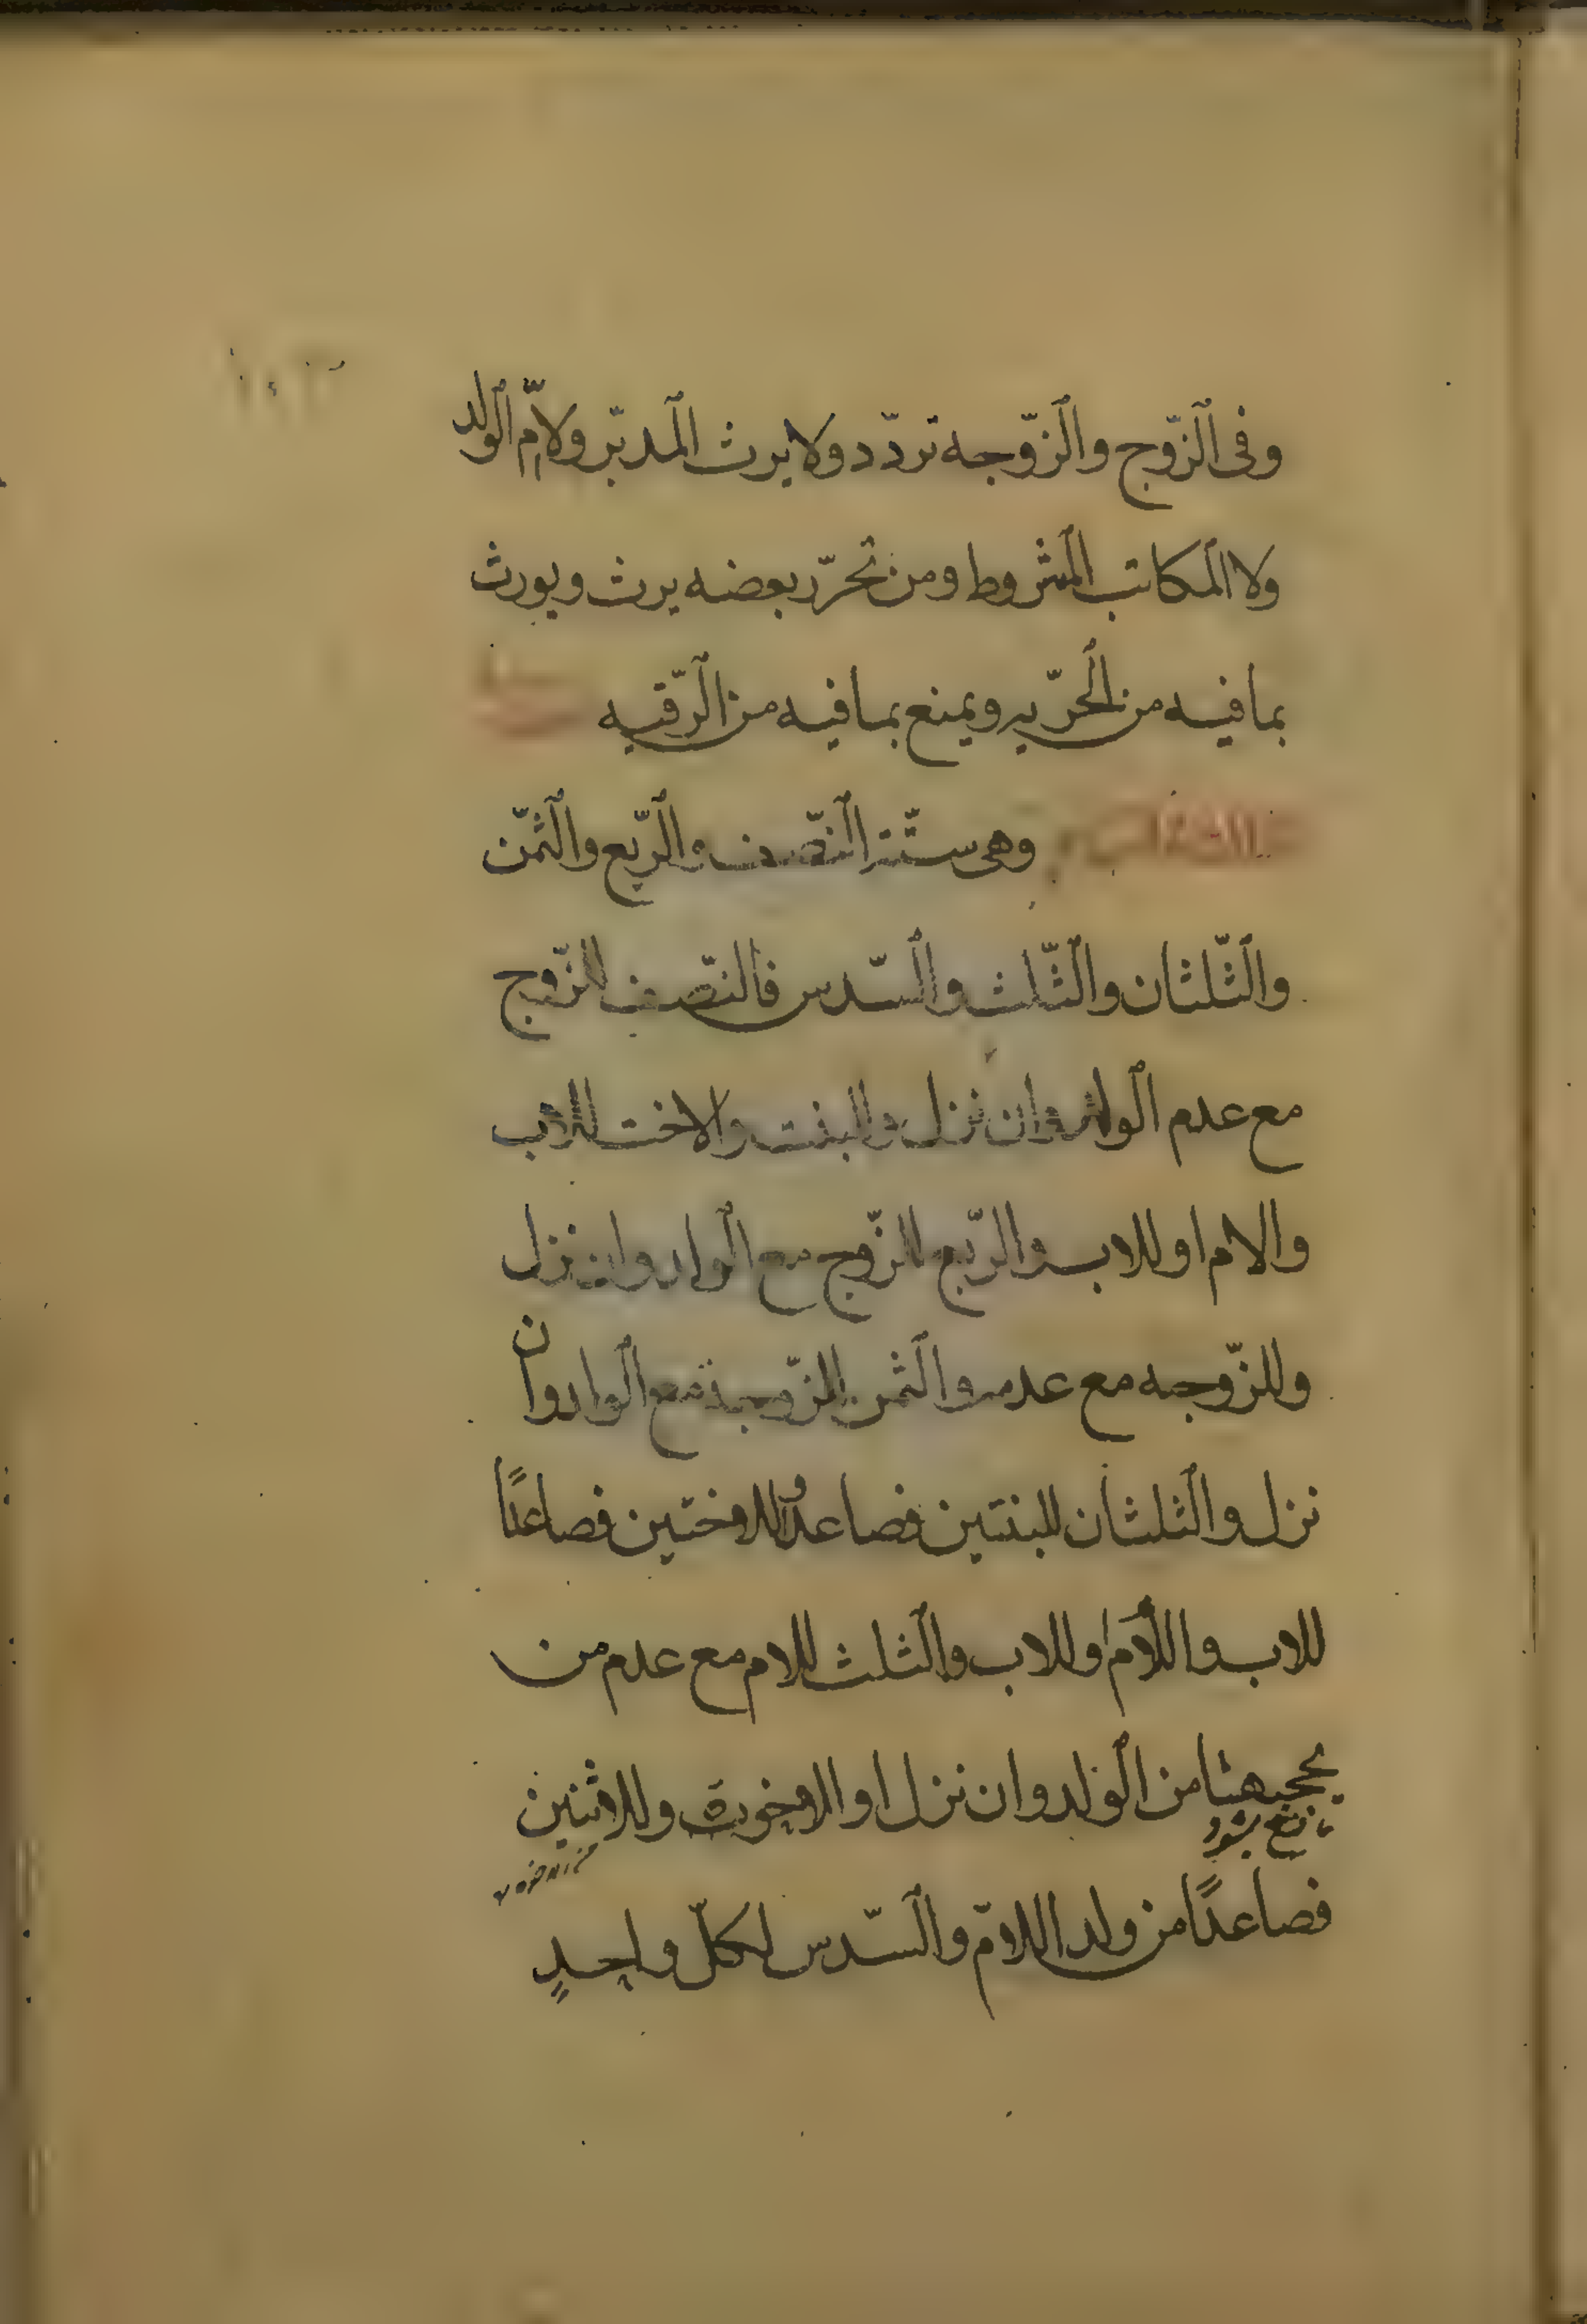 وفى الزّوج والزّوجه تردّد ولا يرث المدبّر ولا امّ الولد
ولا المكاتب المشروط ومن تحرّر بعضه يرث ويورث
بما فيه من الحرّيه ويمنع بما فيه من الرّقيه
وهى ستّة النّصف والرّبع والثّمن
والثّلثان والثّلث والسّدس فالنّصف للزّوج
مع عدم الولد وان نزل والبنت والاخت للاب
والام او للاب والرّبع للزّوج مع الولد وان نزل
وللزّوجه مع عدمه والثّمن للزّوجة مع الولد وان
نزل والثلثان للبنتين فصاعدًا وللاختين فصاعدًا
للاب واللأم او للاب والثلث للام مع عدم من
يحجبها من الولد وان نزل او الاخوة وللاثنين
فصاعدًا من ولد اللامّ والسّدس لكلّ واحدٍ